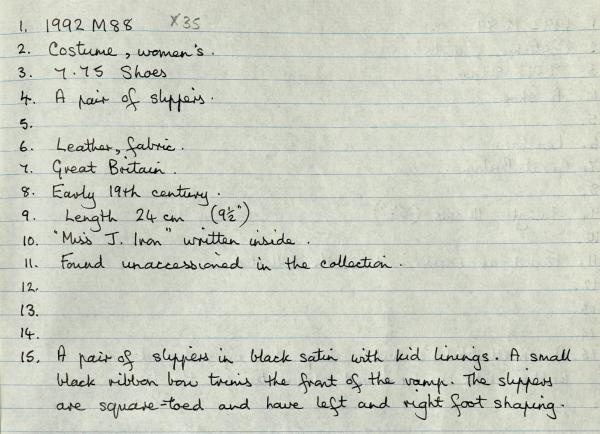 1. 1992 M88 X35
2. Costume, women's.
3. 7.75 Shoes
4. A pair of slippers.
5.
6. Leather, fabric.
7. Great Britain.
8. Early 19th century.
9. Length 24 cm (9½")
10. "Miss J. Iron" written inside.
11. Found unaccessioned in the collection.
12.
13.
14.
15. A pair of slippers in black satin with kid linings. A small
black ribbon bow trims the front of the vamp. The slippers
are square-toed and have left and right foot shaping.